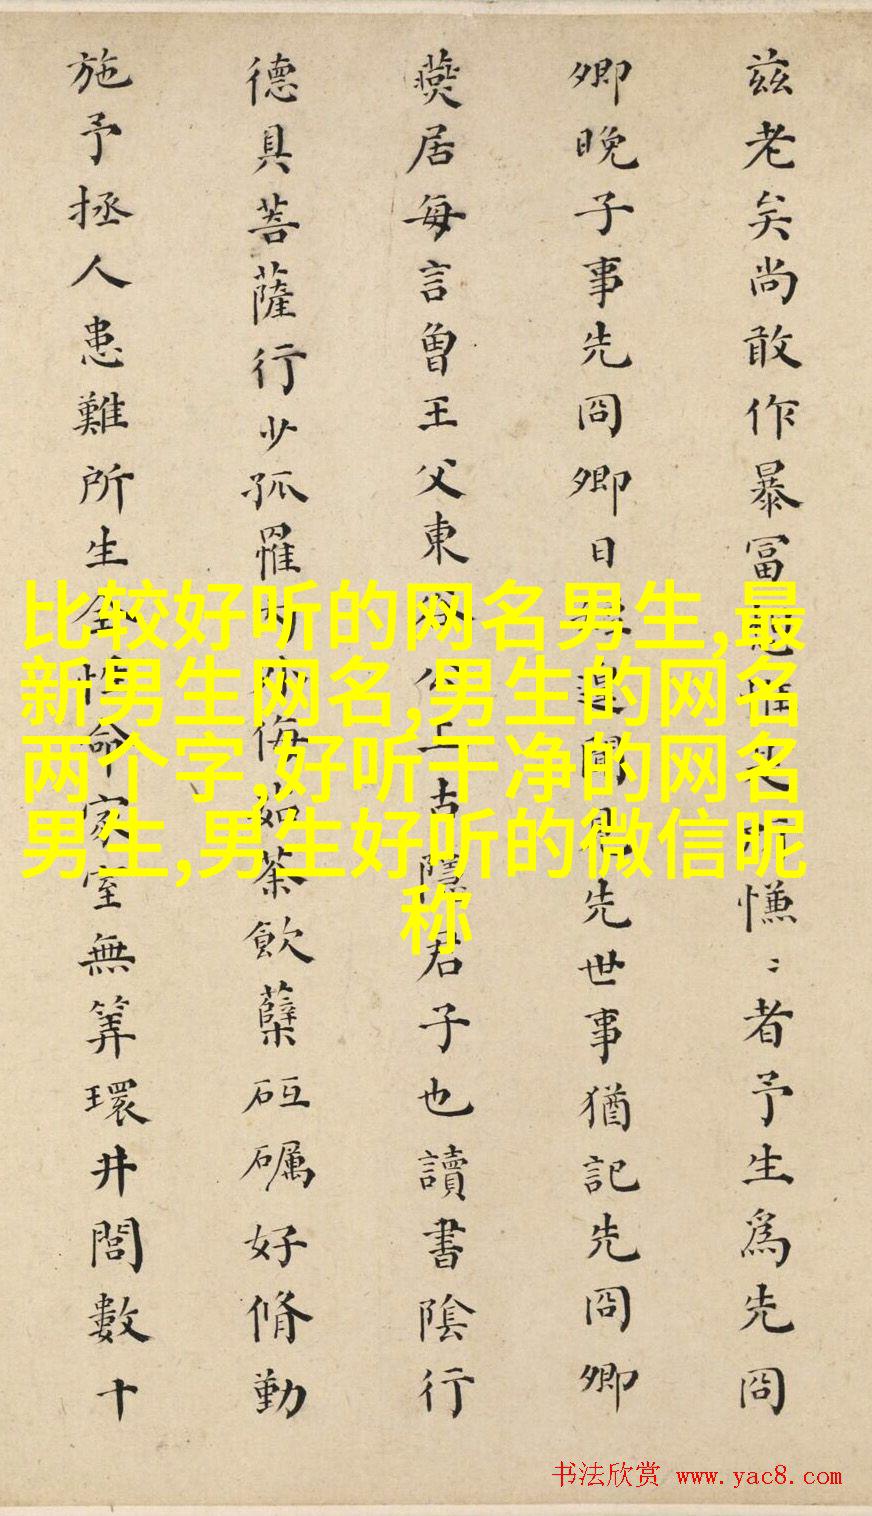 兹老矣尚敢作暴冨惟慊〻者予生為先冏
卿晚子事先冏卿日遑聞見先世事猶記先冏卿
燕居每言曾王父東谷公上古隱君子也讀書陰行
德具菩薩行少孤罹外侮茹荼飲蘖砥礪好脩勤
施予拯人患難所生全性命家室無筭環井閭數十
比较好听的网名男生,最
新男生网名,男生的网名
两个字,好听干净的网名
男生,男生好听的微信昵
称
书法欣赏 www.yac8.com